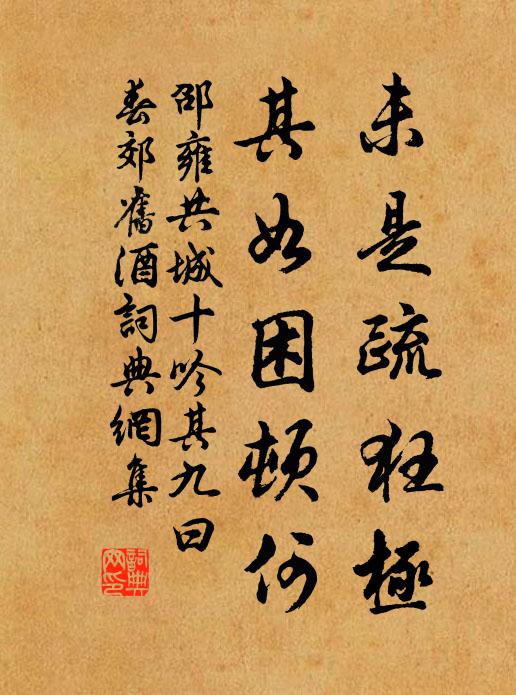 未是疏狂極
其如困頓何
邵雍共城十吟其九曰
春郊舊酒詞典網集
詞典網印